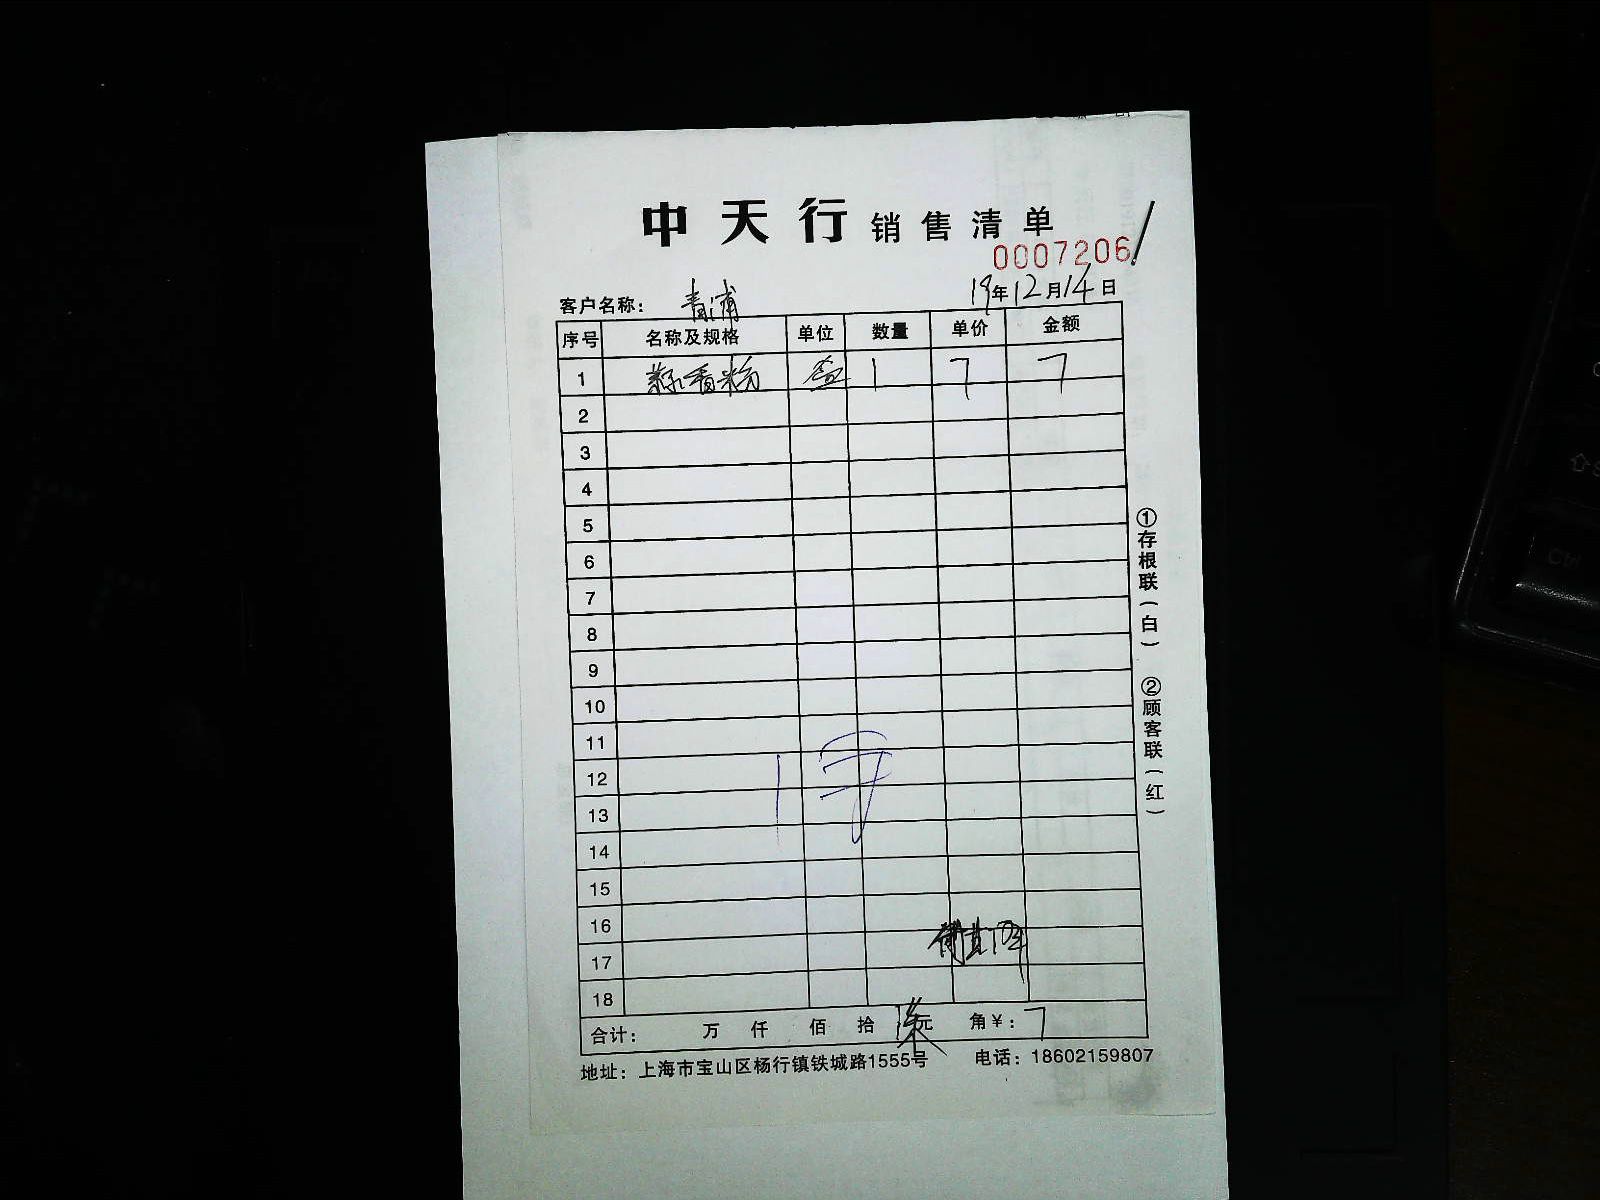 中天行 销售清单
0007206
客户名称: 青浦 19年12月14日
序号 名称及规格 单位 数量 单价 金额
1 香粉 盒 1 7 7
2
3
4
5
6
7
8
9
10
11
12
13
14
15
16
17
18
合计: 万 仟 佰 拾 柒元 角 ¥: 7
地址: 上海市宝山区杨行镇铁城路1555号 电话: 18602159807
①存根联(白) ②顾客联(红)